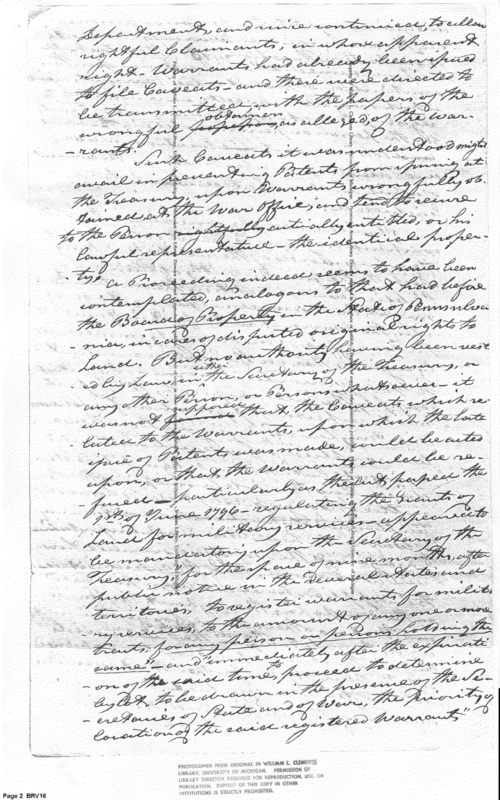 Departments, and were continued, to allow
rightful Claimants, in whose apparent
right - Warrants had already been issued
to file Caveats - and these were directed to
be transmitted, with the papers of the
wrongful obtainers, as alleged, of the War-
-rants.
Such Caveats it was understood might
avail in preventing Patents from issuing at
the Treasury, upon Warrants wrongfully ob-
tained, at the War Office, and tend to secure
to the Person rightfully entitled, or his
lawful representative - the identical proper-
-ty.
A Proceeding indeed seems to have been
contemplated, analogous to that had before
the Board of Property in the State of Pennsylva
-nia, in cases of disputed original rights to
Land. But no authority having been vest
ed by Law, either in the Secretary of the Treasury, or
any other Person, or Persons whatsoever - it
was not supposed that the Caveats which re
lated to the Warrants, upon which the late
issue of Patents was made, could be acted
upon, or that the Warrants could be re-
-fused - particularly as the Act passed the
1st of June 1796 - regulating the grants of
Land for military services - appeared to
be mandatory upon the Secretary of the
Treasury, "for the space of nine months, after
public notice in the several States and
territories, to register warrants for milita
-ry services, to the amount of any one or more
tracts, for any person or persons holding the
same" - and "immediately after the expirati
-on of the said time, to proceed to determine
by lot, to be drawn in the presence of the Se-
-cretaries of State and of War, the Priority of
location of the said registered Warrants"
PHOTOCOPIED FROM ORIGINAL IN WILLIAM L. CLEMENTS
LIBRARY, UNIVERSITY OF MICHIGAN. PERMISSION OF
LIBRARY DIRECTOR REQUIRED FOR REPRODUCTION, USE, OR
PUBLICATION. DEPOSIT OF THIS COPY IN OTHER
INSTITUTIONS IS STRICTLY PROHIBITED.
Page 2 BRV16